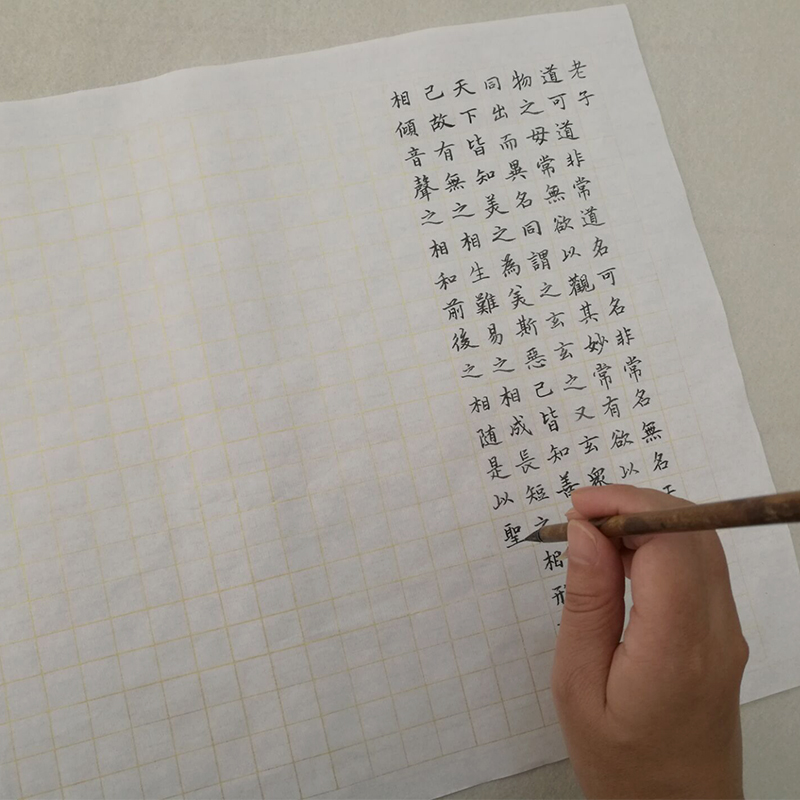 老子
道可道非常道名可名非常名無名
物之母常無欲以觀其妙常有欲以
同出而異名同謂之玄玄之又玄衆
天下皆知美之為美斯惡己皆知善
己故有無之相生難易之相成長短之相形
相傾音聲之相和前後之相随是以聖